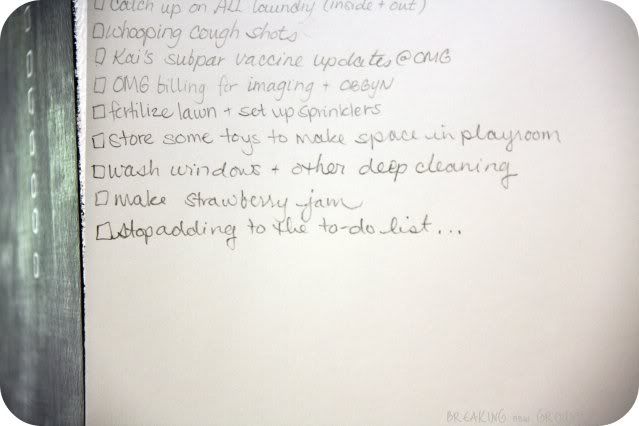 catch up on ALL laundry (inside + out)
whooping cough shots
Kai's subpar vaccine updates @ OMG
OMG billing for imaging + OBGYN
fertilize lawn + set up sprinklers
store some toys to make space in playroom
wash windows + other deep cleaning
make strawberry jam
stop adding to the to-do list...
BREAKING new GROUND